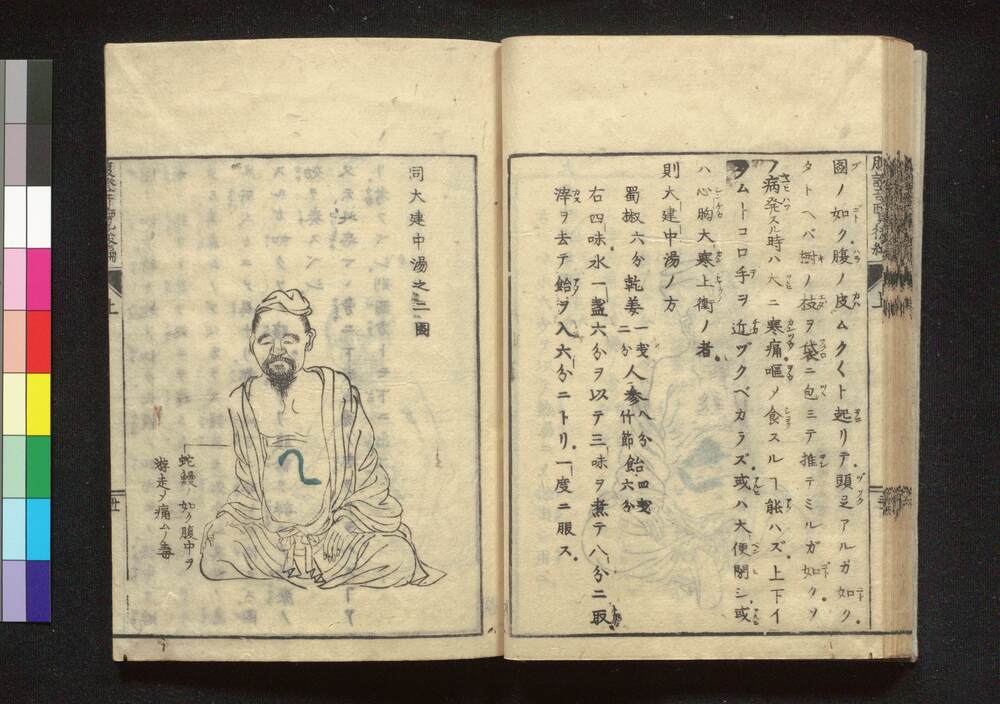 圖ノ如ク腹ノ皮ムク〱ト起リテ頭足アルガ如ク
タトヘバ樹ノ枝ヲ袋ニ包ミテ推テミルガ如ク
ノ病発スル時ハ大ニ寒痛嘔メ食スルヿ能ハズ上下イ
タムトコロ手ヲ近ヅクベカラズ或ハ大便閉シ或
ハ心胸大寒上衝ノ者
則大建中湯ノ方
蜀椒六分乾姜一戔二分人参八分竹節飴四戔六分
右四味水一盞六分ヲ以テ三味ヲ煮テ八分ニ取
滓ヲ去テ飴ヲ入六分ニトリ一度ニ服ス
上
同大建中湯之二圖
蛇鰻ノ如ク腹中ヲ
游走メ痛ムノ毒